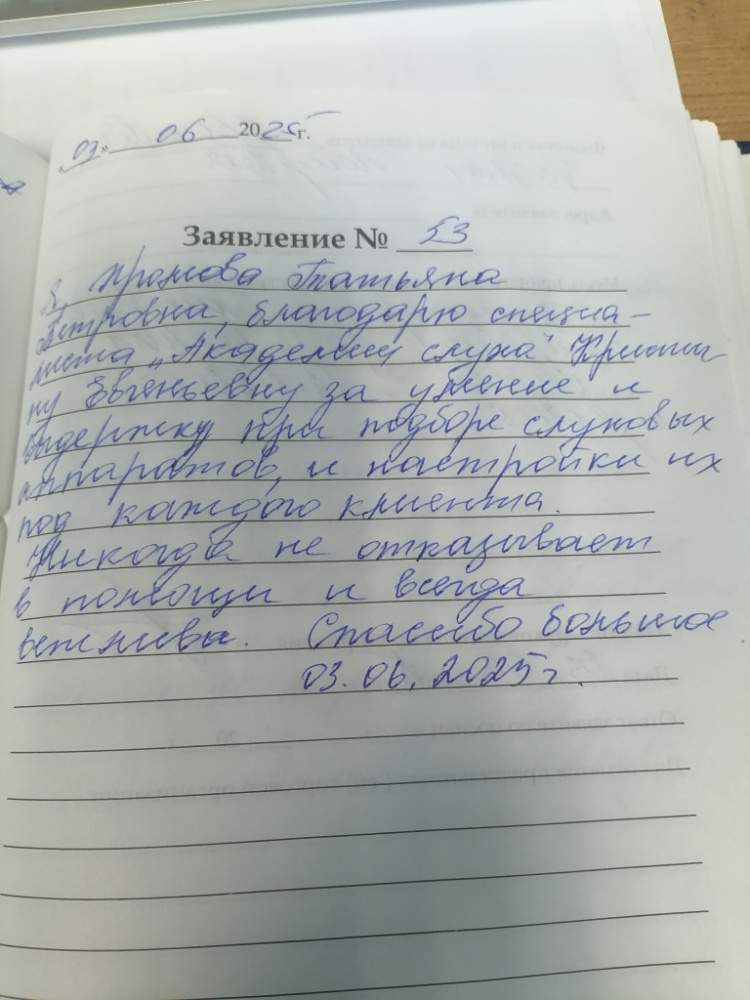 „03" 06 2025г.
Заявление № 53
Я, Громова Татьяна
Петровна, благодарю специа-
листа „Академии слуха" Кристи
ну Евгеньевну за умение и
выдержку при подборе слуховых
аппаратов, и настройки их
под каждого клиента.
Никогда не отказывает
в помощи и всегда
вежлива. Спасибо большое.
03.06.2025г.